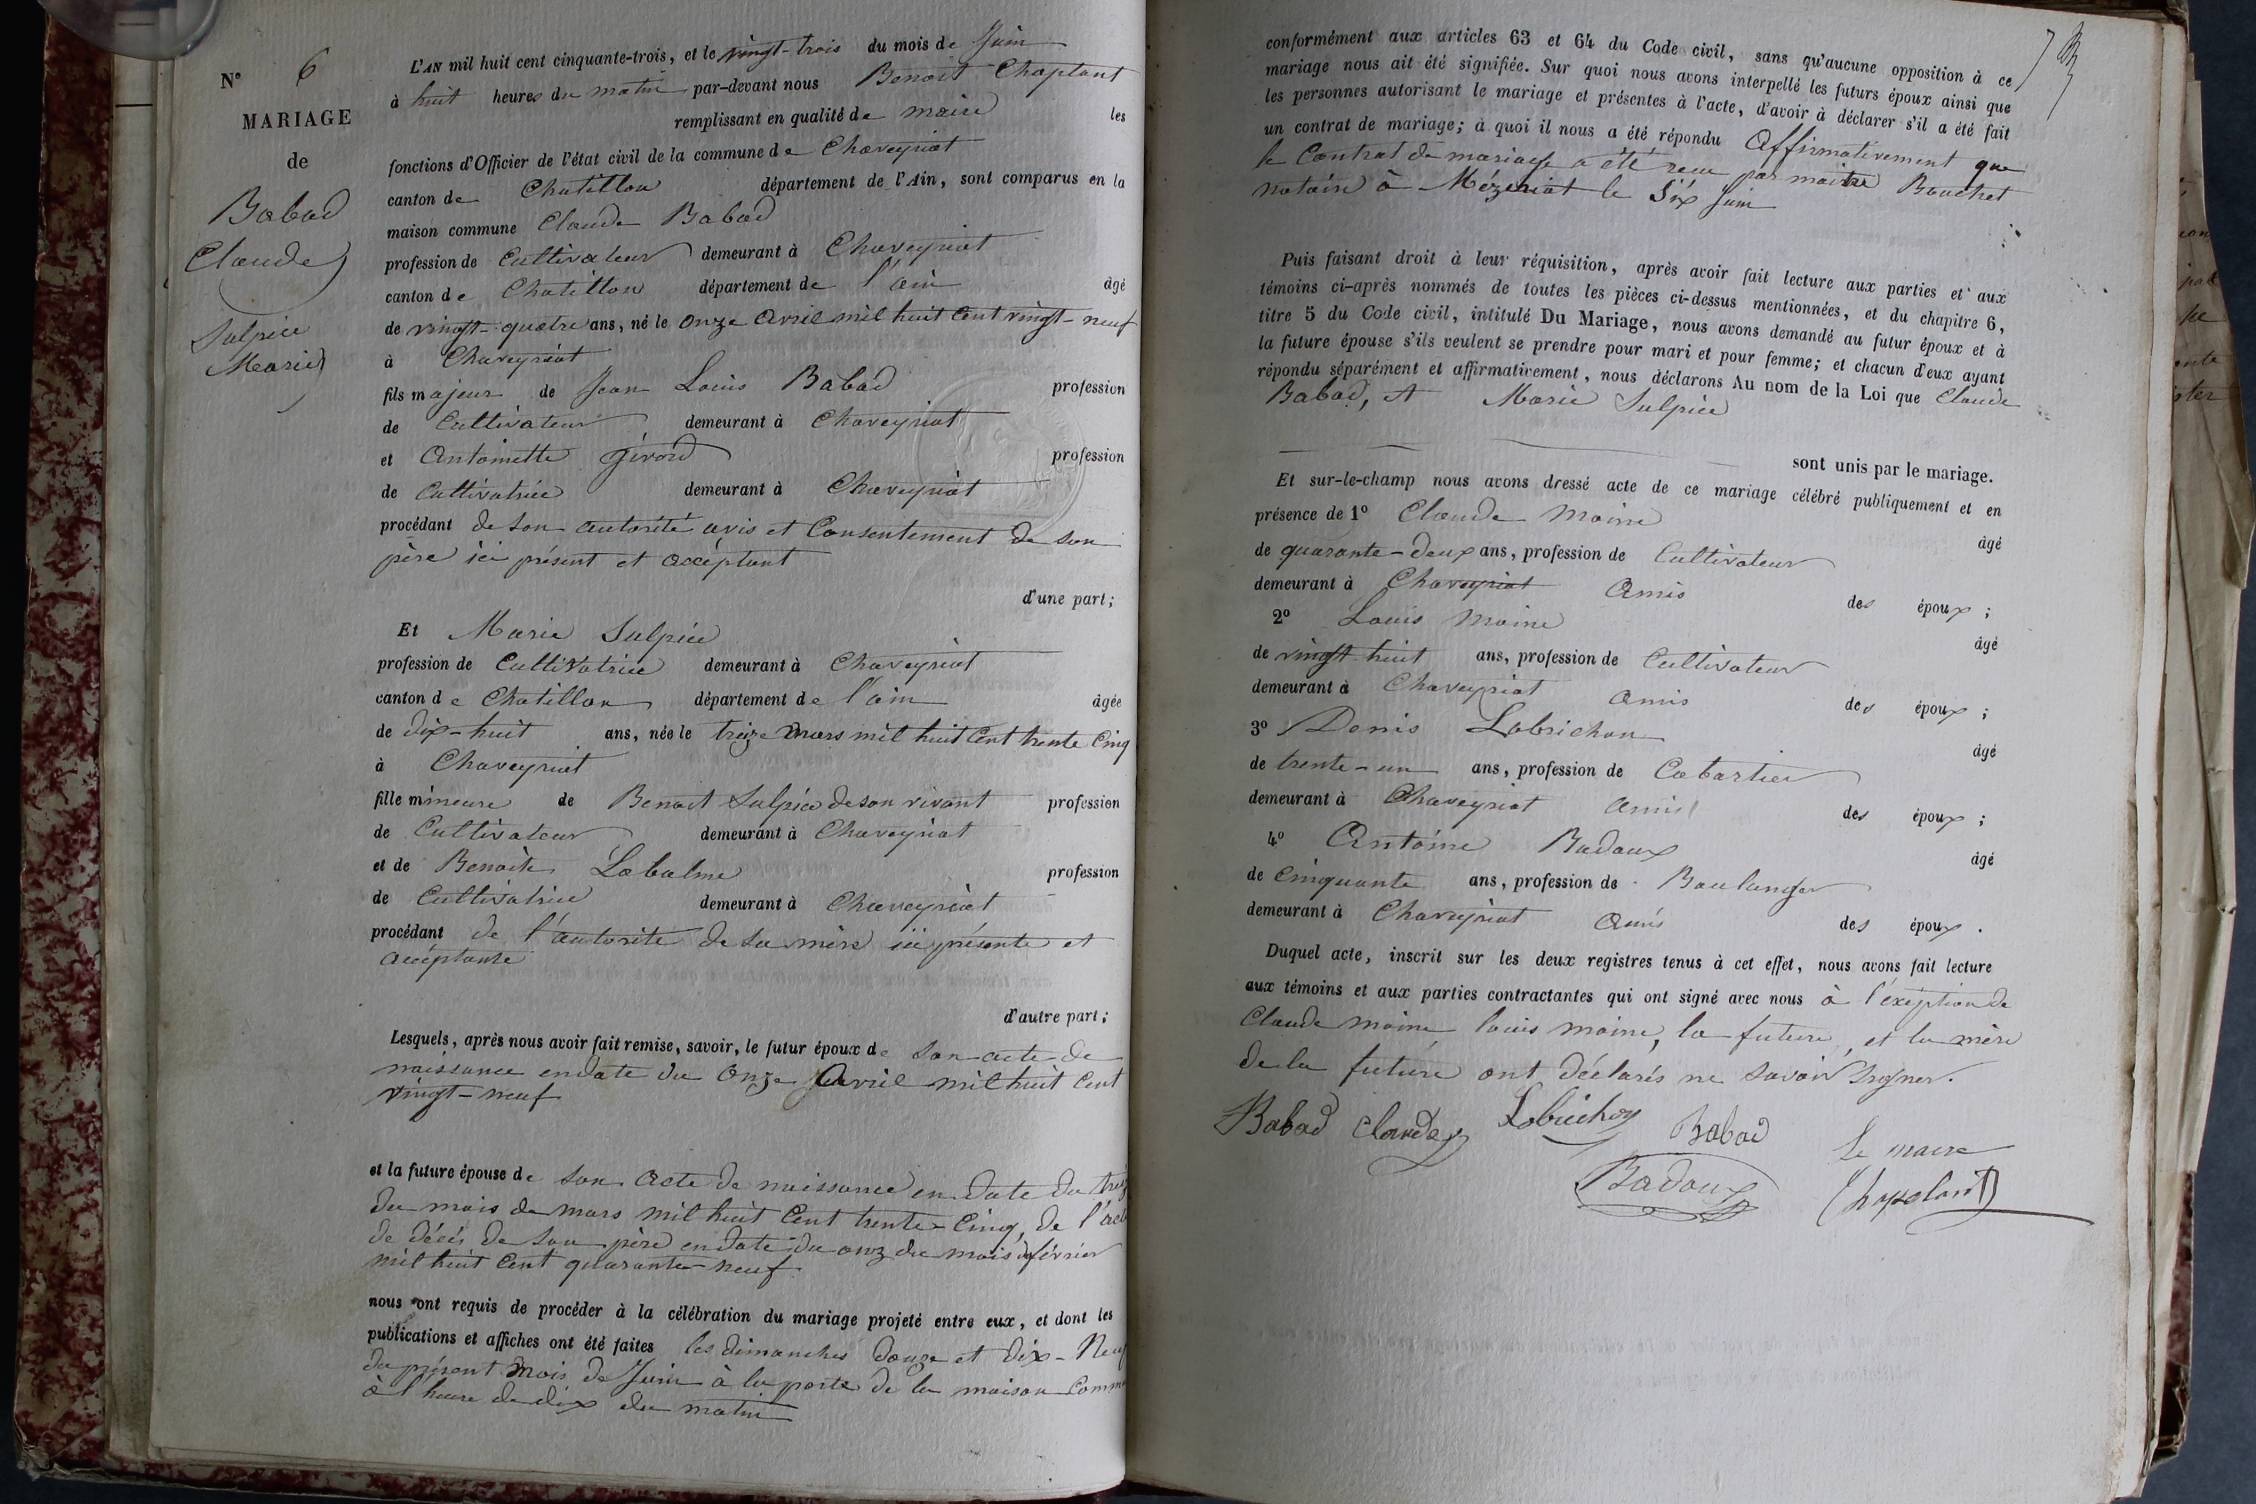 N° 6
MARIAGE
de
Babad
Claude
Sulpice
Marie
L'AN mil huit cent cinquante-trois, et le vingt-trois du mois de Juin
à huit heures du matin par-devant nous Benoit Chaplant
remplissant en qualité de maire les
fonctions d'Officier de l'état civil de la commune de Chaveyriat
canton de Chatillon département de l'Ain, sont comparus en la
maison commune Claude Babad
profession de Cultivateur demeurant à Chaveyriat
canton de Chatillon département de l'ain âgé
de vingt-quatre ans, né le onze Avril mil huit Cent vingt-neuf
à Chaveyriat
fils majeur de Jean Louis Babad profession
de Cultivateur demeurant à Chaveyriat
et Antoinette Girord profession
de Cultivatrice demeurant à Chaveyriat
procédant de son autorité avis et Consentement de son
père ici présent et accéptant
d'une part;
Et Marie Sulpice
profession de Cultivatrice demeurant à Chaveyriat
canton de Chatillon département de l'ain âgée
de dix-huit ans, née le treize mars mil huit Cent trente Cinq
à Chaveyriat
fille mineure de Benoit Sulpice de son vivant profession
de Cultivateur demeurant à Chaveyriat
et de Benoite Labalme profession
de Cultivatrice demeurant à Chaveyriat
procédant de l'autorité de sa mère ici présente et
accéptante
d'autre part;
Lesquels, après nous avoir fait remise, savoir, le futur époux de son acte de
naissance en date du Onze Avril mil huit Cent
vingt-neuf
et la future épouse de son Acte de naissance en date du treiz
du mois de mars mil huit Cent trente-Cinq, de l'acte
de décés de son père en date du onz du mois de février
mil huit Cent quarante-neuf
nous ont requis de procéder à la célébration du mariage projeté entre eux, et dont les
publications et affiches ont été faites les dimanches douze et dix-Neuf
du présent mois de Juin à la porte de la maison Comm
à l'heure de dix du matin
conformément aux articles 63 et 64 du Code civil, sans qu'aucune opposition à ce
mariage nous ait été signifiée. Sur quoi nous avons interpellé les futurs époux ainsi que
les personnes autorisant le mariage et présentes à l'acte, d'avoir à déclarer s'il a été fait
un contrat de mariage; à quoi il nous a été répondu Affirmativement que
le Contrat de mariage a été reçu par maitre Bouchet
notaire à Mézeriat le Six Juin
Puis faisant droit à leur réquisition, après avoir fait lecture aux parties et aux
témoins ci-après nommés de toutes les pièces ci-dessus mentionnées, et du chapitre 6,
titre 5 du Code civil, intitulé Du Mariage, nous avons demandé au futur époux et à
la future épouse s'ils veulent se prendre pour mari et pour femme; et chacun d'eux ayant
répondu séparément et affirmativement, nous déclarons Au nom de la Loi que Claude
Babad, et Marie Sulpice
sont unis par le mariage.
Et sur-le-champ nous avons dressé acte de ce mariage célébré publiquement et en
présence de 1° Claude Moine âgé
de quarante-deux ans, profession de Cultivateur
demeurant à Chaveyriat Amis des époux;
2° Louis Moine âgé
de vingt huit ans, profession de Cultivateur
demeurant à Chaveyriat amis des époux;
3° Denis Labrichon âgé
de trente-un ans, profession de Cabartier
demeurant à Chaveyriat amis des époux;
4° Antoine Badoux âgé
de Cinquante ans, profession de Boulanger
demeurant à Chaveyriat amis des époux.
Duquel acte, inscrit sur les deux registres tenus à cet effet, nous avons fait lecture
aux témoins et aux parties contractantes qui ont signé avec nous à l'éxéption de
Claude moine louis moine, la future, et la mère
de la future ont déclarés ne savoir Signer.
Babad Claude Labrichon Babad Le maire
Badoux Chapelant